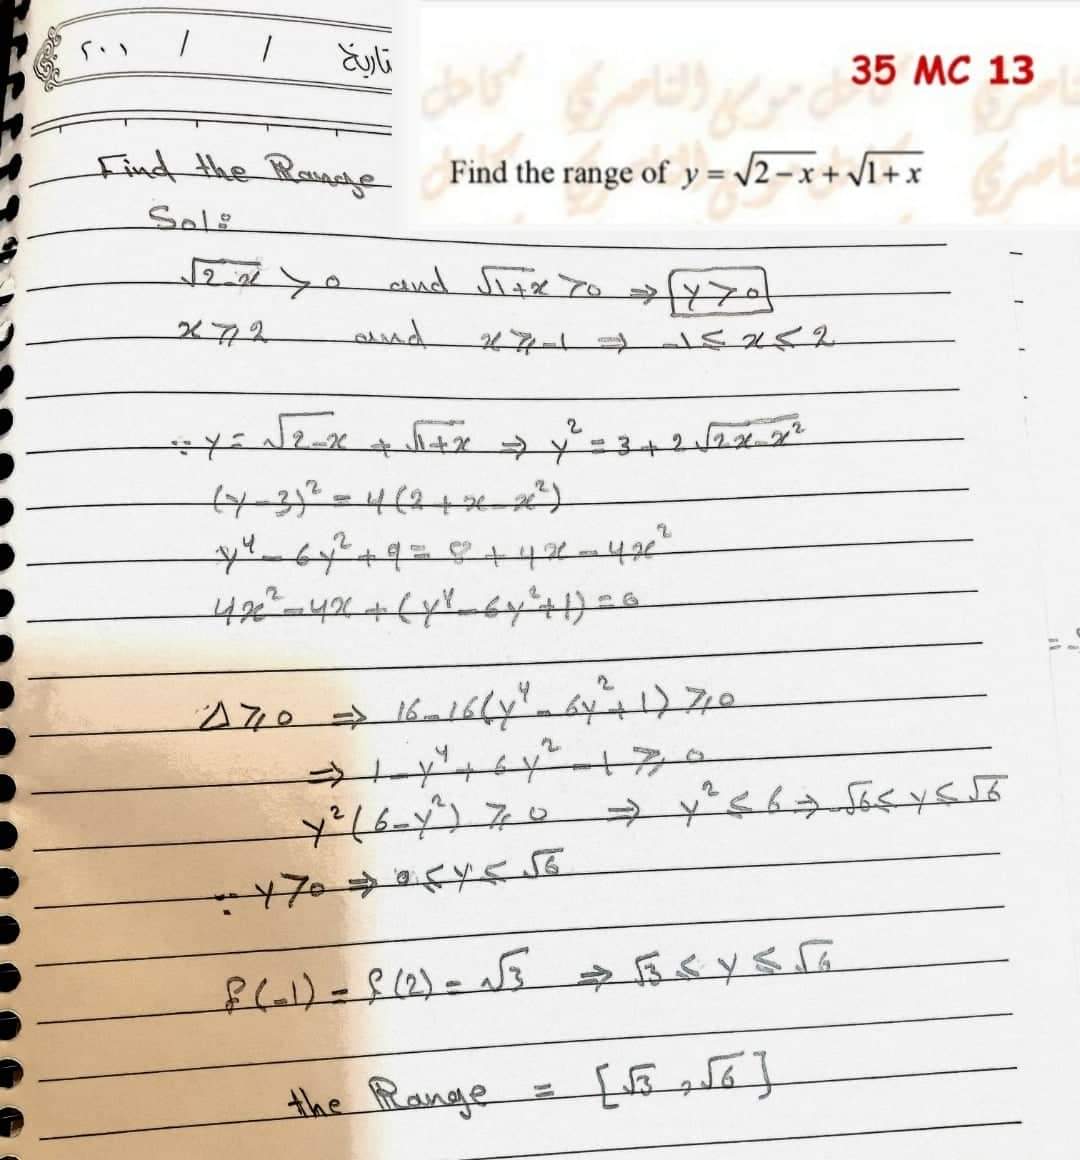 ٢٠٠١ / / تاريخ
35 MC 13
Find the range of y = √2-x + √1+x
Find the Range
Sol:
√2-x > 0 and √1+x > 0 ⇒ y > 0
x ⩾ 2 and x ⩾ -1 ⇒ -1 ≤ x ≤ 2
∵ y = √2-x + √1+x ⇒ y² = 3 + 2√2x-x²
(y-3)² = 4(2+x-x²)
y⁴-6y²+9 = 8+4x-4x²
4x²-4x+(y⁴-6y²+1)=0
Δ⩾0 ⇒ 16-16(y⁴-6y²+1)⩾0
⇒ 1-y⁴+6y²-1⩾0
y²(6-y²)⩾0 ⇒ y²≤6 ⇒ -√6≤y≤√6
∵ y>0 ⇒ 0≤y≤√6
f(-1) = f(2) = √3 ⇒ √3≤y≤√6
the Range = [√3,√6]